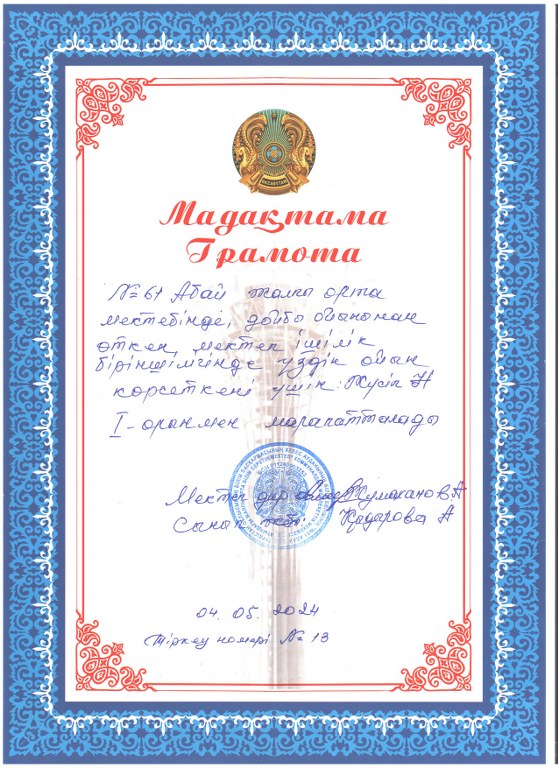 ҚАЗАҚСТАН
Мадақтама
Грамота
№ 61 Абай жалпы орта
мектебінде, дойбы ойынынан
өткен, мектеп ішілік
біріншілігінде үздік ойын
көрсеткені үшін: Н
I - орынмен марапатталады
Мектеп дир Жумаханов А
Сынып жет: Қадарова А
04. 05. 2024
Тіркеу номері № 13